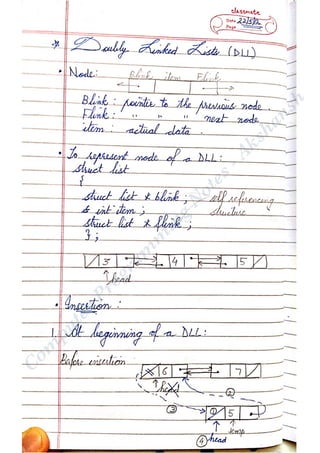 classmate
Date 22/5/22
Page
* Doubly Linked Lists (DLL)
• Node: Blink item Flink
Blink : pointer to the previous node.
Flink : " " " next node
item : actual data.
• To represent node of a DLL:
struct list
{
struct list * blink ; self referencing
int item ; structure
struct list * flink ;
} ;
3 4 5
head
• Insertion :
1. At beginning of a DLL:
Before insertion
6 7
head
②
③ ① 5
temp
④ head
Computer Programming Notes - Akshansh